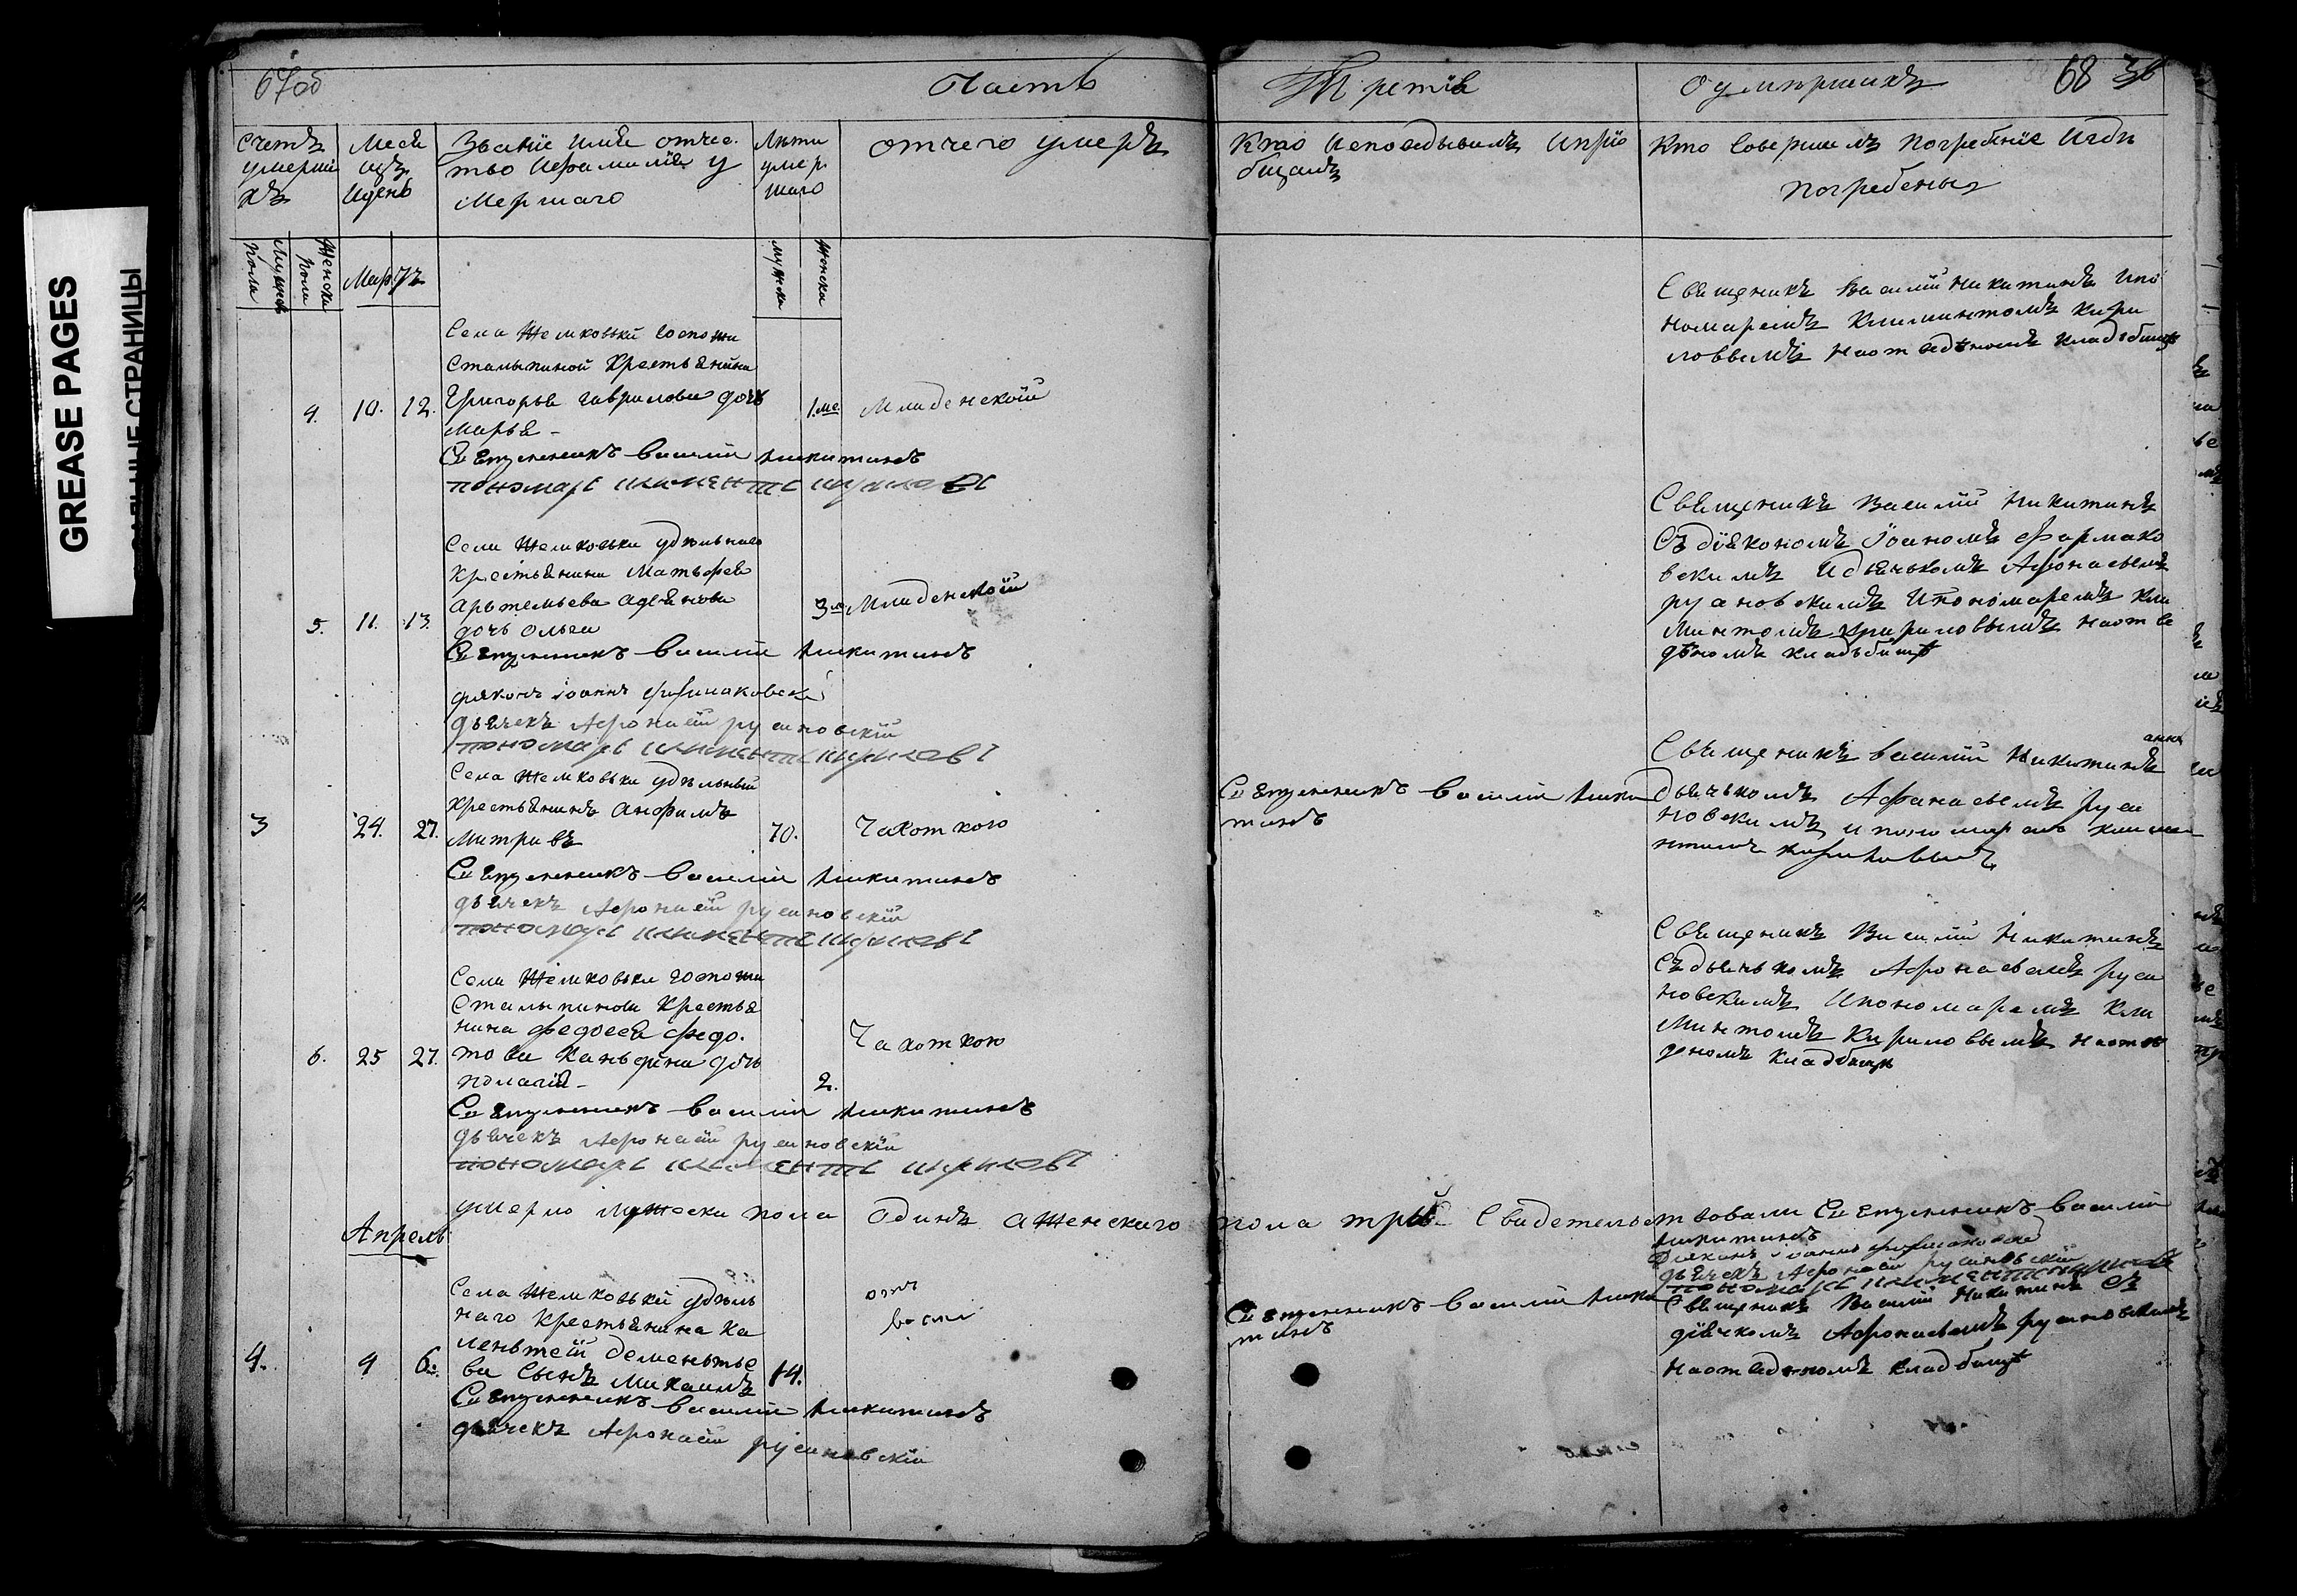 GREASE PAGES
67об
Часть
Третія
О умершихъ
68
Счетъ умерши хъ
Меся цъ и день
Званіе имя отчес тво и фамилія у мершаго
Лѣта умер шаго
отчего умеръ
Кто исповѣдывалъ и прио бщалъ
Кто совершилъ погребеніе и гдѣ погребены
Мужеска пола
Женска пола
Мартъ
мужска
женска
Села Шемковки госпожи
Сталыпиной крестьянина
4. 10. 12. Григорья гаврилова дочь 1.ме. Младенской
Марья
Священникъ Василій Никитинъ
пономарь климентъ кириловъ
Священникъ Василій Никитинъ и по
номаремъ Климинтомъ кири
ловымъ на отведѣномъ кладбищѣ
Села Шемковки удѣльнаго
Крестьянина Матьфея
Арьтемьева
5. 11. 13. дочь Ольга 3 Младенской
Священникъ Василій Никитинъ
диаконъ іоаннъ
дьячекъ Афонасій русановскій
пономарь климентъ кириловъ
Священникъ Василій Никитинъ
Съ діякономъ Іоаномъ Фармако
вскимъ и дьячькомъ Афонасьемъ
русановскимъ и пономаремъ кли
минтомъ кириловымъ на отве
дѣномъ кладьбищѣ
Села Шемковки удѣльный
крестьянинъ Анфимъ
3 24. 27. Митривъ 70. Чахоткою
Священникъ Василій Никитинъ
дьячекъ Афонасій русановскій
пономарь климентъ кириловъ
Священникъ Василій Никитинъ
Священникъ Василій Никитинъ
дьячькомъ Афанасьемъ руса
новскимъ и пономаремъ климе
нтомъ кириловымъ
Села Шемковки госпожи
Сталыпиной Крестья
нина федосея федо.
6. 25 27. това дочь 2. Чахоткою
Священникъ Василій Никитинъ
дьячекъ Афонасій русановскій
пономарь климентъ кириловъ
Священникъ Василій Никитинъ
Съ дьячькомъ Афонасьемъ руса
новскимъ и пономаремъ Кли
минтомъ Кириловымъ на отве
деномъ кладбищѣ
умерло мужеска пола одинъ а женскаго пола три Свидетельствовали Священникъ Василій
Никитинъ
Диаконъ Іоаннъ
дьячекъ Афонасій русановскій
пономарь климентъ кириловъ
Апрель
Села Шемковки удѣль
наго крестьянина Ка
леньтей деменьтье
4. 4 6. ва Сынъ Михаилъ 14.
отъ
воспы
Священникъ Василій Никитинъ
дьячекъ Афонасій русановскій
Священникъ Василій Никитинъ
Священникъ Василій Никитинъ Съ
діячкомъ Афонасьемъ русановскимъ
на отведеномъ кладбищѣ